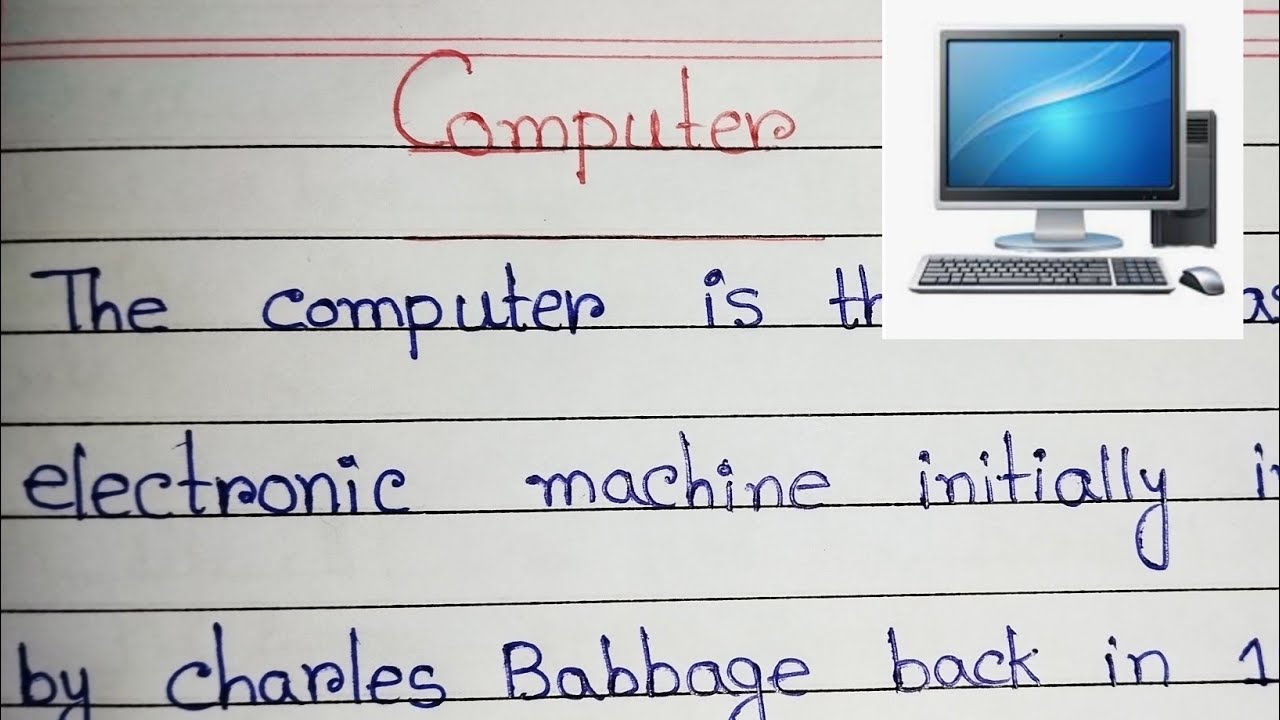 Computer
The computer is th
electronic machine initially i
by charles Babbage back in 1